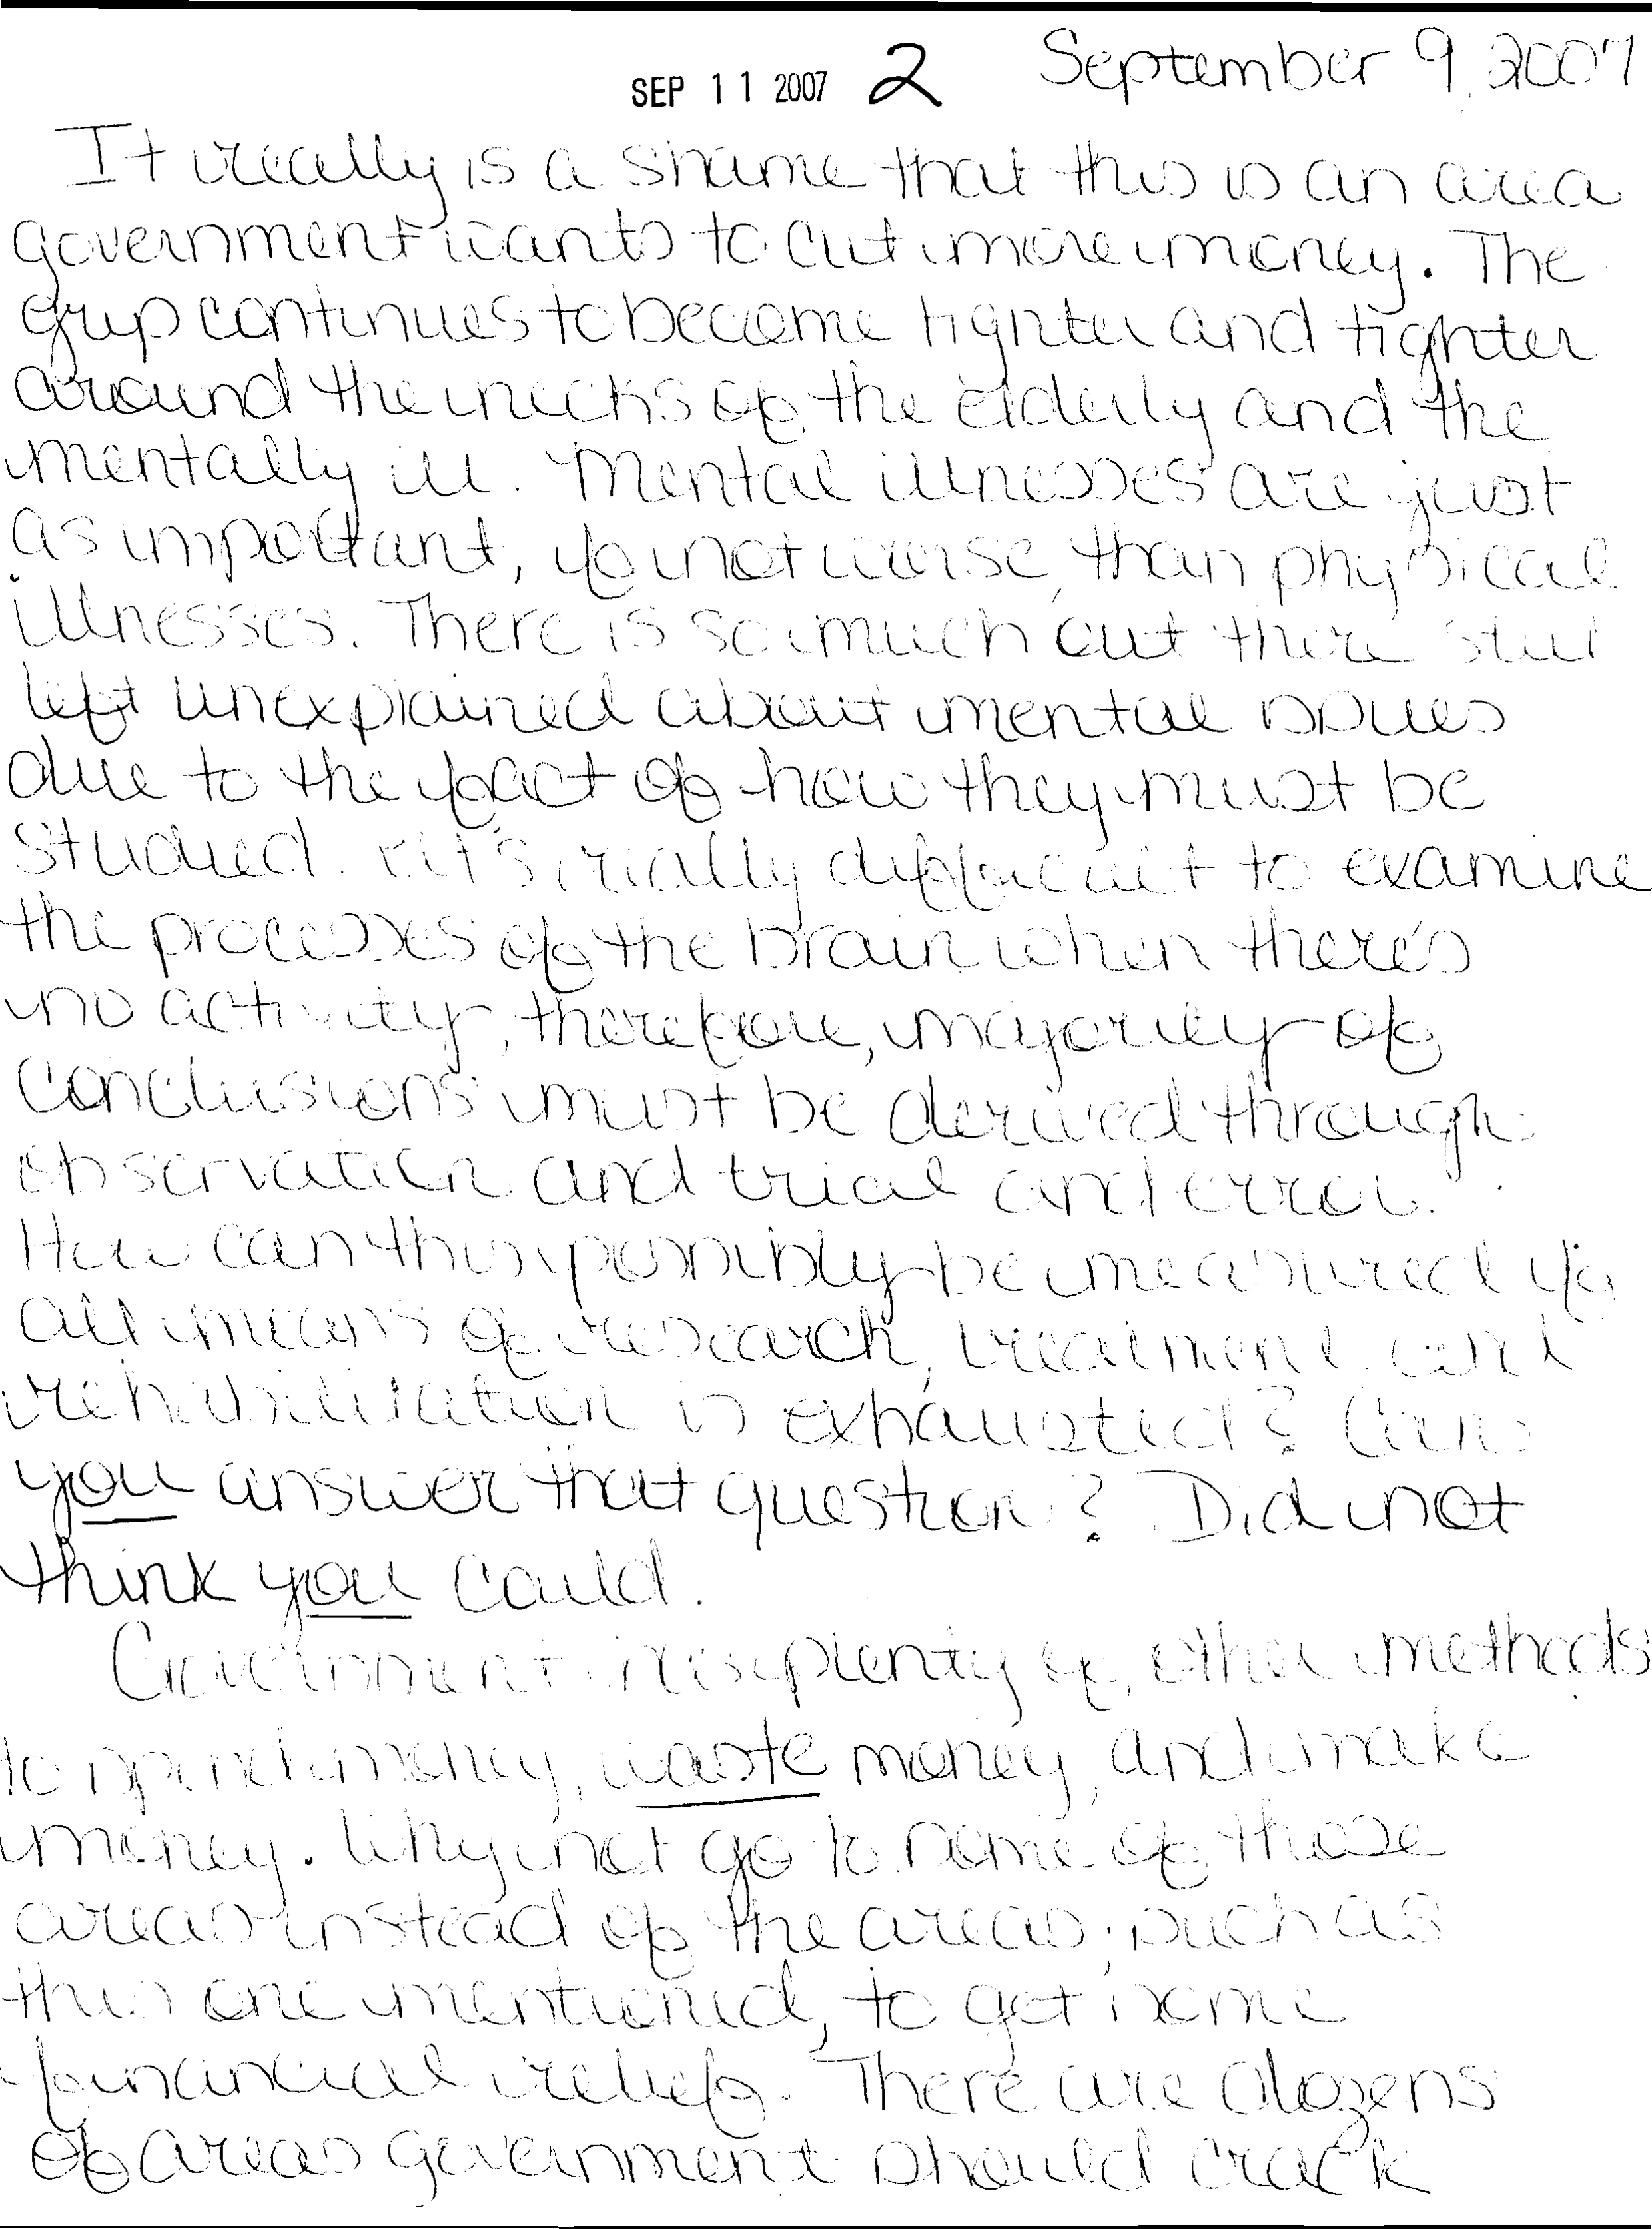 SEP 11 2007 2 September 9, 2007
It really is a shame that this is an area
government wants to cut more money. The
grip continues to become tighter and tighter
around the necks of the elderly and the
mentally ill. Mental illnesses are just
as important, if not worse, than physical
illnesses. There is so much out there still
left unexplained about mental issues
due to the fact of how they must be
studied. It's really difficult to examine
the processes of the brain when there's
no activity, therefore, majority of
conclusions must be derived through
observation and trial and error.
How can this possibly be measured if
all means of research, treatment and
rehabilitation is exhausted? Can
you answer that question? Did not
think you could.
Government has plenty of other methods
to spend money, waste money, and make
money. Why not go to some of those
areas instead of the areas, such as
this one mentioned, to get some
financial relief. There are dozens
of areas government should crack